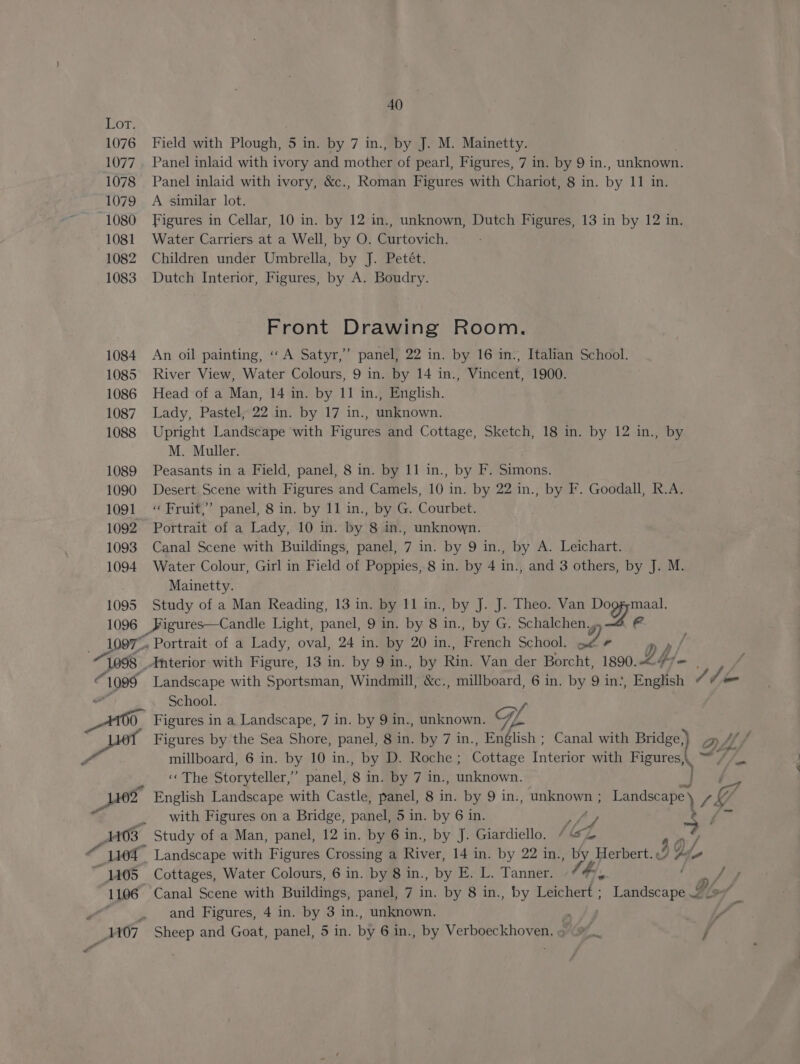 40
Lot.
1076 Field with Plough, 5 in. by 7 in., by J. M. Mainetty.
1077 Panel inlaid with ivory and mother of pearl, Figures, 7 in. by 9 in., unknown.
1078 Panel inlaid with ivory, &c., Roman Figures with Chariot, 8 in. by 11 in.
1079 A similar lot.
1080 Figures in Cellar, 10 in. by 12 in., unknown, Dutch Figures, 13 in by 12 in.
1081 Water Carriers at a Well, by O. Curtovich.
1082 Children under Umbrella, by J. Petét.
1083 Dutch Interior, Figures, by A. Boudry.
Front Drawing Room.
1084 An oil painting, “A Satyr,” panel, 22 in. by 16 in., Italian School.
1085 River View, Water Colours, 9 in. by 14 in., Vincent, 1900.
1086 Head of a Man, 14 in. by 11 in., English.
1087 Lady, Pastel, 22 in. by 17 in., unknown.
1088 Upright Landscape with Figures and Cottage, Sketch, 18 in. by 12 in., by
M. Muller.
1089 Peasants in a Field, panel, 8 in. by 11 in., by F. Simons.
1090 Desert Scene with Figures and Camels, 10 in. by 22 in., by F. Goodall, R.A.
1091 “Fruit,” panel, 8 in. by 11 in., by G. Courbet.
1092 Portrait of a Lady, 10 in. by 8 in., unknown.
1093 Canal Scene with Buildings, panel, 7 in. by 9 in., by A. Leichart.
1094 Water Colour, Girl in Field of Poppies, 8 in. by 4 in., and 3 others, by J. M.
Mainetty.
1095 Study of a Man Reading, 13 in. by 11 in., by J. J. Theo. Van Dogymaal.
1096 Figures—Candle Light, panel, 9 in. by 8 in., by G. Schalchen.
1097 Portrait of a Lady, oval, 24 in. by 20 in., French School.
1098 Interior with Figure, 13 in. by 9 in., by Rin. Van der Borcht, 1890.
1099 Landscape with Sportsman, Windmill, &c., millboard, 6 in. by 9 in., English
School.
1100 Figures in a Landscape, 7 in. by 9 in., unknown.
1101 Figures by the Sea Shore, panel, 8 in. by 7 in., English ; Canal with Bridge,
millboard, 6 in. by 10 in., by D. Roche ; Cottage Interior with Figures,
“The Storyteller,” panel, 8 in. by 7 in., unknown.
1102 English Landscape with Castle, panel, 8 in. by 9 in., unknown ; Landscape
with Figures on a Bridge, panel, 5 in. by 6 in.
1103 Study of a Man, panel, 12 in. by 6 in., by J. Giardiello.
1104 Landscape with Figures Crossing a River, 14 in. by 22 in., by Herbert.
1105 Cottages, Water Colours, 6 in. by 8 in., by E. L. Tanner.
1106 Canal Scene with Buildings, panel, 7 in. by 8 in., by Leichert ; Landscape
and Figures, 4 in. by 3 in., unknown.
1107 Sheep and Goat, panel, 5 in. by 6 in., by Verboeckhoven.